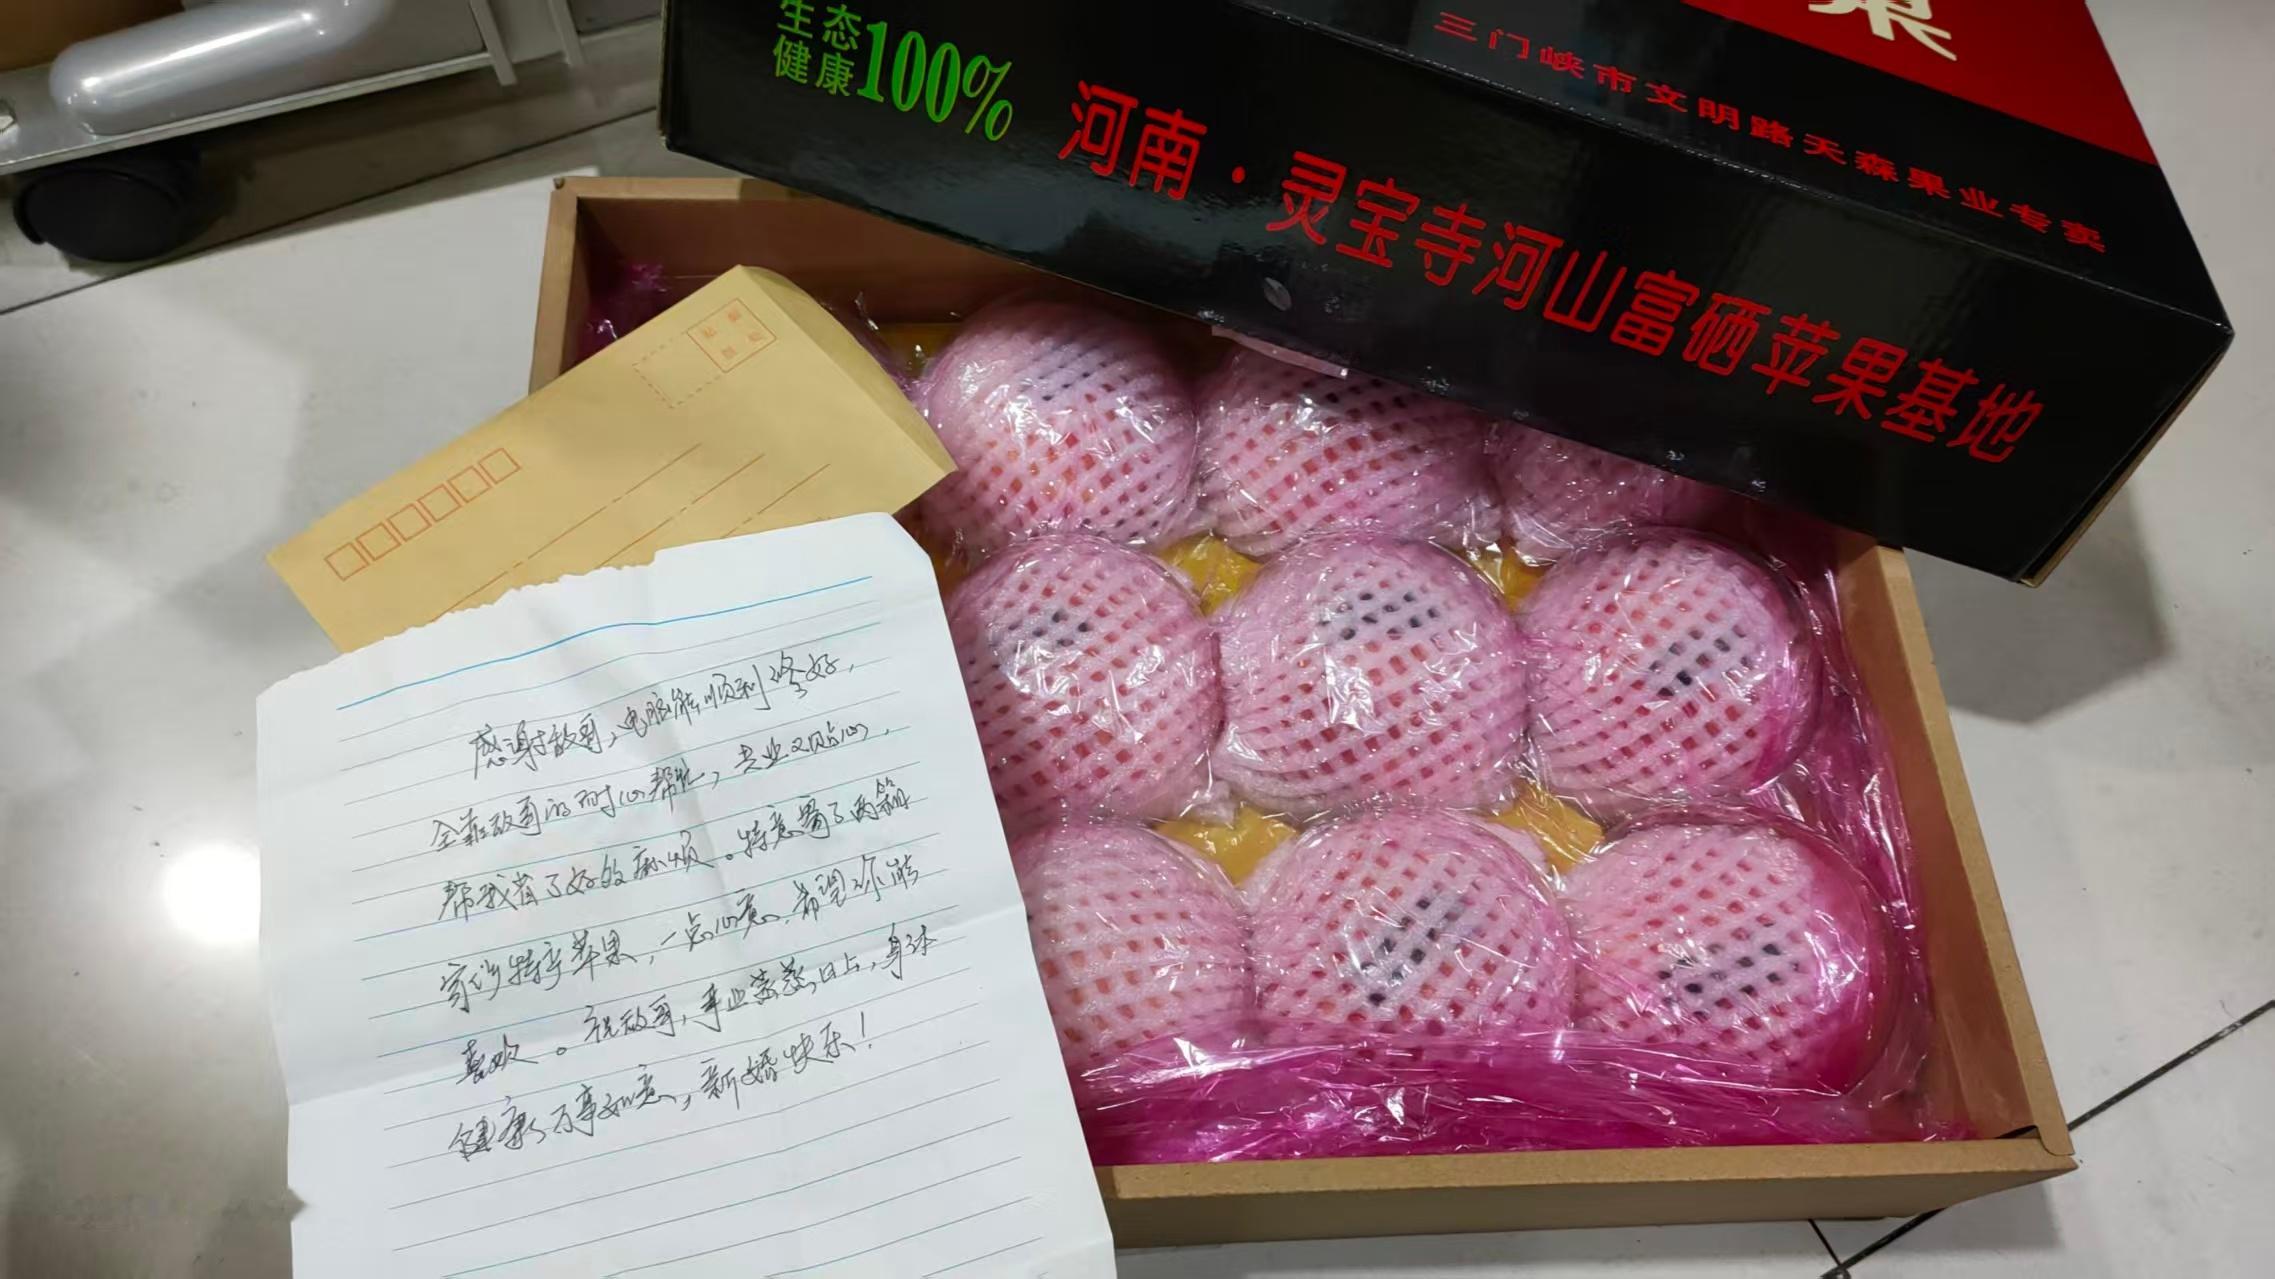 生态
健康100%
果
三门峡市文明路天森果业专卖
河南·灵宝寺河山富硒苹果基地
贴 邮
票 处
感谢敖哥,电脑能顺利修好,
全靠敖哥的耐心帮忙,专业又贴心,
帮我省了好多麻烦。特意寄了两箱
家乡特产苹果,一点心意,希望你能
喜欢。祝敖哥,事业蒸蒸日上,身体
健康,万事如意,新婚快乐!